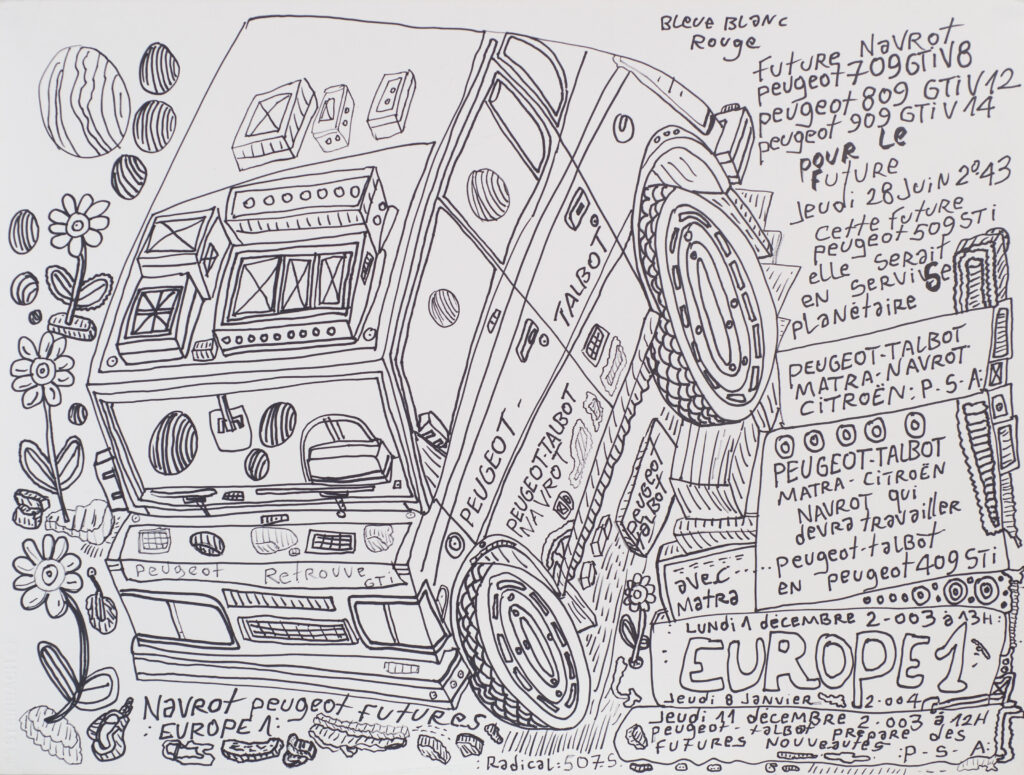 BLEUE BLANC
ROUGE
FUTURE NAVROT
peugeot 709 GTIV8
peugeot 809 GTIV12
peugeot 909 GTIV14
POUR LE
FUTURE
Jeudi 28 Juin 2043
Cette future
peugeot 509 STi
elle serait
en service
6
PLANÉTAIRE
PEUGEOT-TALBOT
MATRA-NAVROT
CITROËN: P-S-A:
PEUGEOT-TALBOT
MATRA-CITROËN
NAVROT qui
devra travailler
peugeot-talbot
en peugeot 409 STi
avec......
Matra
LUNDI 1 décembre 2-003 à 13H:
EUROPE 1
Jeudi 8 Janvier 2-004
Jeudi 11 décembre 2-003 à 12H
peugeot-talbot prépare des
futures nouveautés :P-S-A:
PEUGEOT - TALBOT
PEUGEOT-TALBOT
NAVROT
PEUGEOT
TALBOT
Peugeot Retrouve
GTI
Navrot peugeot futures
:EUROPE 1:
:Radical:507.S.